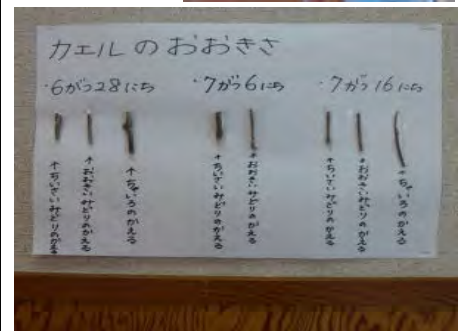 カエルのおおきさ
・6がつ28にち
・7がつ6にち
・7がつ16にち
↑ちいさいみどりのかえる
↑おおきいみどりのかえる
↑ちゃいろのかえる
↑ちいさいみどりのかえる
↑おおきいみどりのかえる
↑ちいさいみどりのかえる
↑おおきいみどりのかえる
↑ちゃいろのかえる